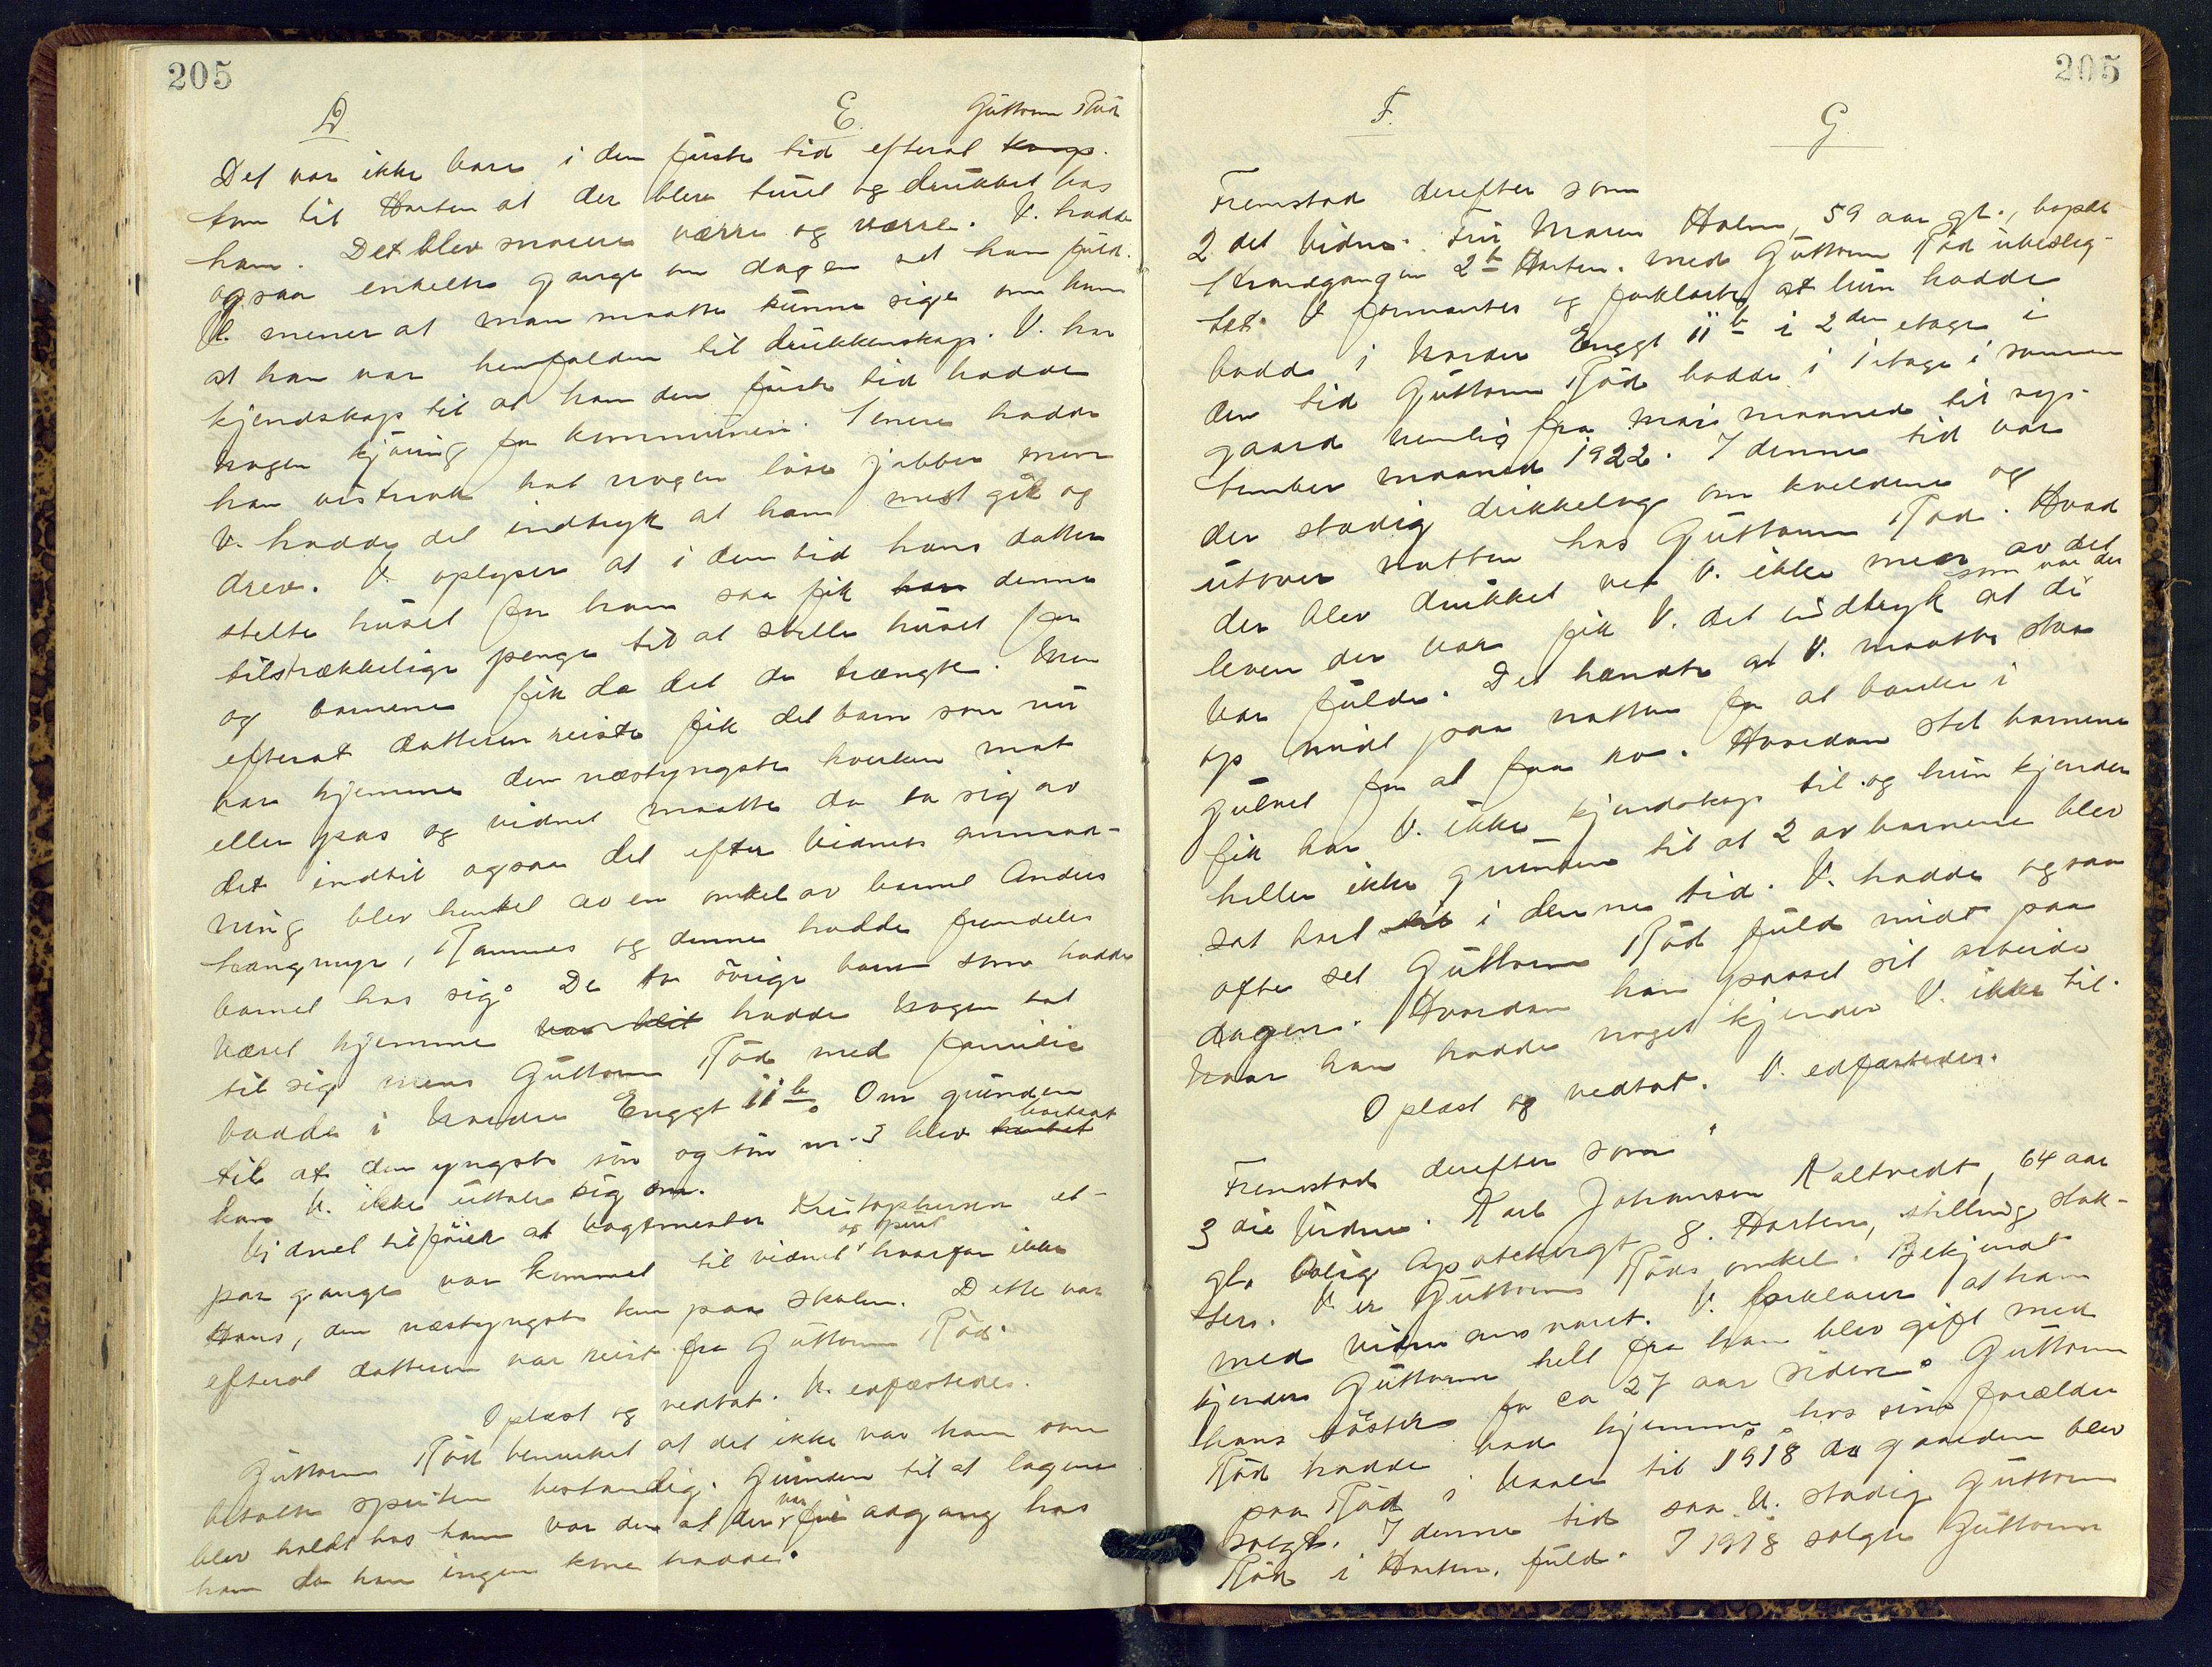 205
D E. Guttorm Röd
Det var ikke bare i den første tid efterat
kom til Horten at der blev turet og drukket hos
ham. Det blev snarere værre og værre. V. hadde
ogsaa enkelte gange om dagen set ham fuld.
V. mener at man maatte kunne sige om ham
at han var henfalden til drukkenskap. V. har
kjendskap til at han den første tid hadde
nogen kjöring for kommunen. Senere hadde
han vistnok hat nogen löse jobber men
V. hadde det indtryk at han mest gik og
drev. V. oplyser at i den tid hans datter
stelte huset for ham saa fik han denne
tilstrækkelige penge til at stelle huset for
og barnene fik da det de trængte. Men
efterat datteren reiste fik det barn som nu
var hjemme den næstyngste hverken mat
eller pas og vidnet maatte da ta sig av
det indtil ogsaa det efter vidnets anmod-
ning blev hentet av en onkel av barnet Anders
hangmyr, Ramnes og denne hadde fremdeles
barnet hos sig. De to övrige barn som hadde
været hjemme var blit hadde nogen tat
til sig mens Guttorm Röd med familie
bodde i Nordre Enggt 11b. Om grunden
til at den yngste sön og sön nr. 3 blev hentet bortsat
kan V. ikke uttale sig om.
Vidnet tilföier at baatsmester Kristophersen et-
par gange var kommet til vidnet og spurt hvorfor ikke
Hans, den næstyngste kom paa skolen. Dette var
efterat datteren var reist fra Guttorm Röd.
Oplæst og vedtat. V. edfæstedes.
Guttorm Röd bemerket at det ikke var ham som
betalte spriten bestandig. Grunden til at lagene
blev holdt hos ham var den at der var fri adgang hos
ham da han ingen kone hadde.
205
F. G.
Fremstod derefter som
2 det Vidne. Fru Maren Holm, 59 aar gl., bopæl
Strandgangen 2b Horten. Med Guttorm Röd ubeslæg-
tet. V. formantes og forklarte at hun hadde
bodd i Nordre Enggt 11b i 2den etage i
den tid Guttorm Röd bodde i 1 etage i samme
gaard nemlig fra mai maaned til sep-
tember maaned 1922. I denne tid var
der stadig drikkelag om kveldene og
utover natten hos Guttorm Röd. Hvad
der blev drukket vet V. ikke men av det
leven der var fik V. det indtryk at de som var der
var fulde. Det hændte at V. maatte staa
op midt paa natten for at banke i
gulvet for at faa ro. Hvordan stel barnene
fik har V. ikke kjendskap til og hun kjender
heller ikke grunden til at 2 av barnene blev
sat bort i denne tid. V. hadde ogsaa
ofte set Guttorm Röd fuld midt paa
dagen. Hvordan han passet sit arbeide
naar han hadde noget kjender V. ikke til.
Oplæst og vedtat. V. edfæstedes.
Fremstod derefter som
3 die Vidne. Karl Johansen Kaltvedt, 64 aar
gl. Bolig Apotekergt 8. Horten, stilling slak-
ter. V. er Guttorm Röds onkel. Bekjendt
med vidneansvaret. V. forklarer at han
kjender Guttorm helt fra han blev gift med
hans söster for ca 27 aar siden. Guttorm
Röd hadde bod hjemme hos sine forældre
paa Röd i Vaale til 1918 da gaarden blev
solgt. I denne tid saa V. stadig Guttorm
Röd i Horten, fuld. I 1918 solgte Guttorm